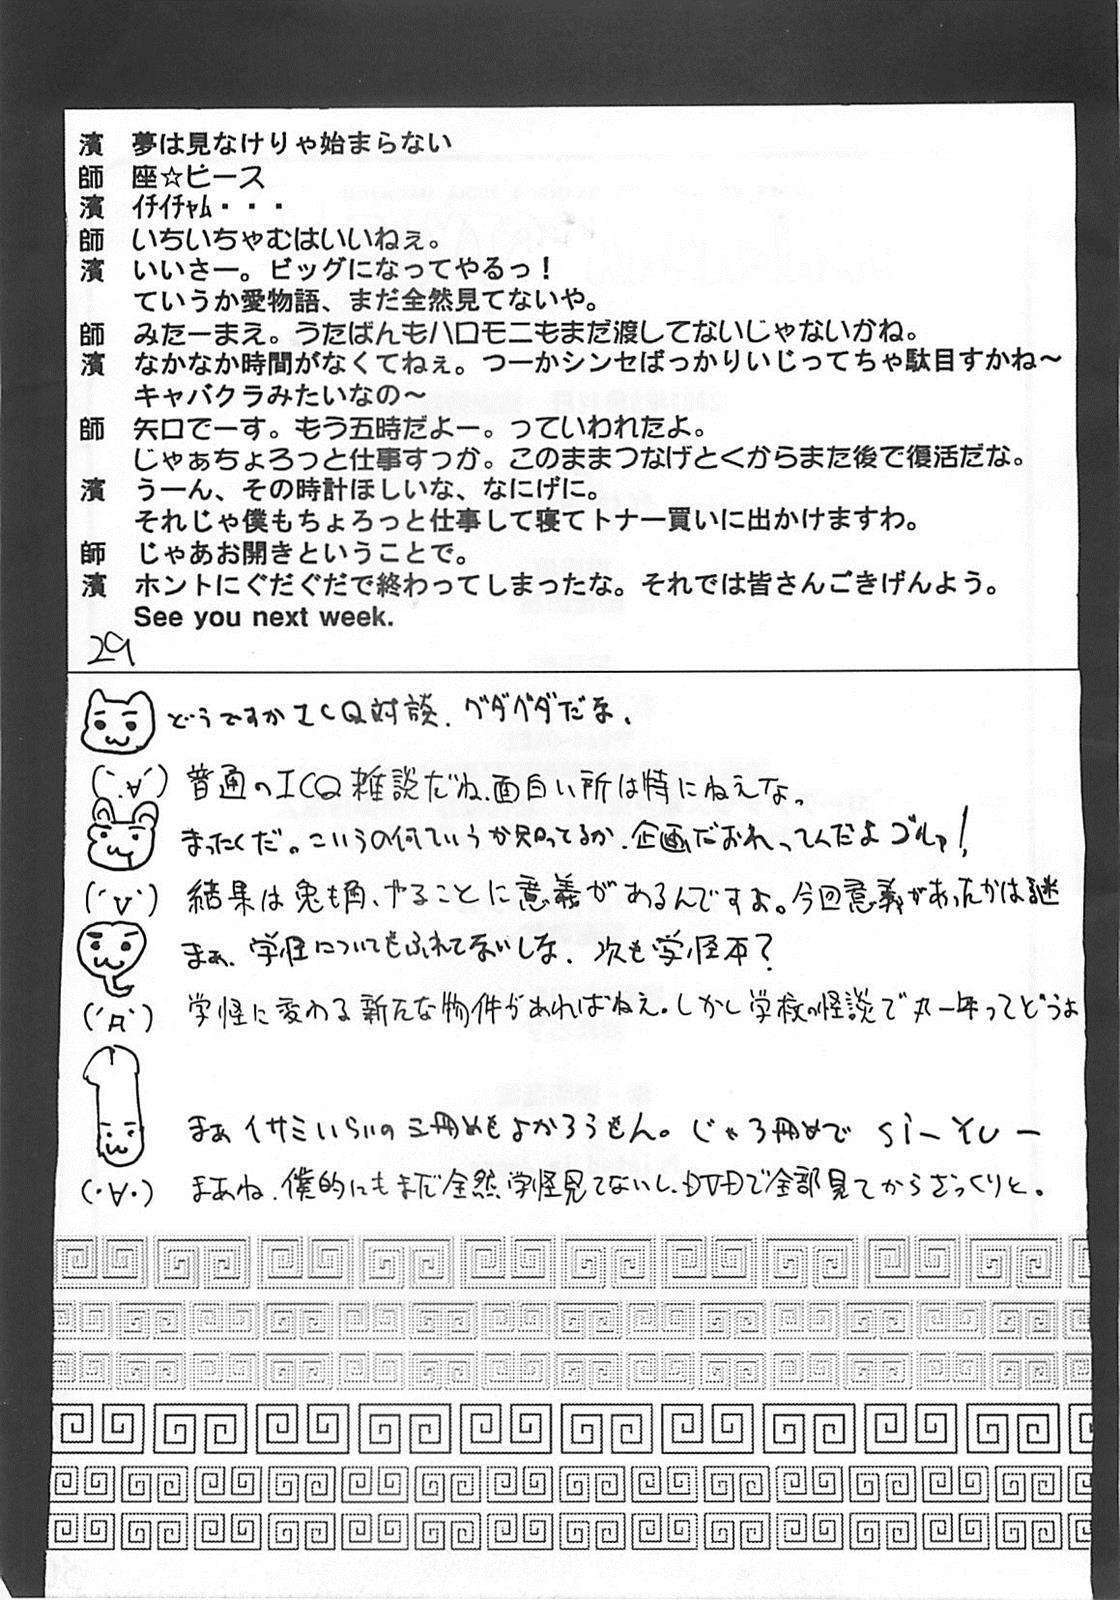 濱 夢は見なけりゃ始まらない
師 座☆ピース
濱 ｲﾁｲﾁｬﾑ・・・
師 いちいちゃむはいいねぇ。
濱 いいさー。ビッグになってやるっ！
ていうか愛物語、まだ全然見てないや。
師 みたーまえ。うたばんもハロモニもまだ渡してないじゃないかね。
濱 なかなか時間がなくてねぇ。つーかシンセばっかりいじってちゃ駄目すかね～
キャバクラみたいなの～
師 矢口でーす。もう五時だよー。っていわれたよ。
じゃぁちょろっと仕事すっか。このままつなげとくからまた後で復活だな。
濱 うーん、その時計ほしいな、なにげに。
それじゃ僕もちょろっと仕事して寝てトナー買いに出かけますわ。
師 じゃあお開きということで。
濱 ホントにぐだぐだで終わってしまったな。それでは皆さんごきげんよう。
See you next week.
29
どうですかICQ対談、グダグダだな、
(`.∀´) 普通のICQ雑談だね、面白い所は特にねえな。
まったくだ。こいうの何ていうか知ってるか、企画だおれってんだよゴルァ！
(`∨´) 結果は兎も角、やることに意義があるんですよ。今回意義があったかは謎
まぁ、学怪についてもふれてないしな、次も学怪本？
(`Д´) 学怪に変わる新たな物件があればねえ。しかし学校の怪談で丸一年ってどうよ
まぁイサミいらいの三冊めもよかろうもん。じゃ3冊めで Si-YU-
(・∀・) まあね、僕的にもまだ全然学怪見てないし、DVDで全部見てからざっくりと。